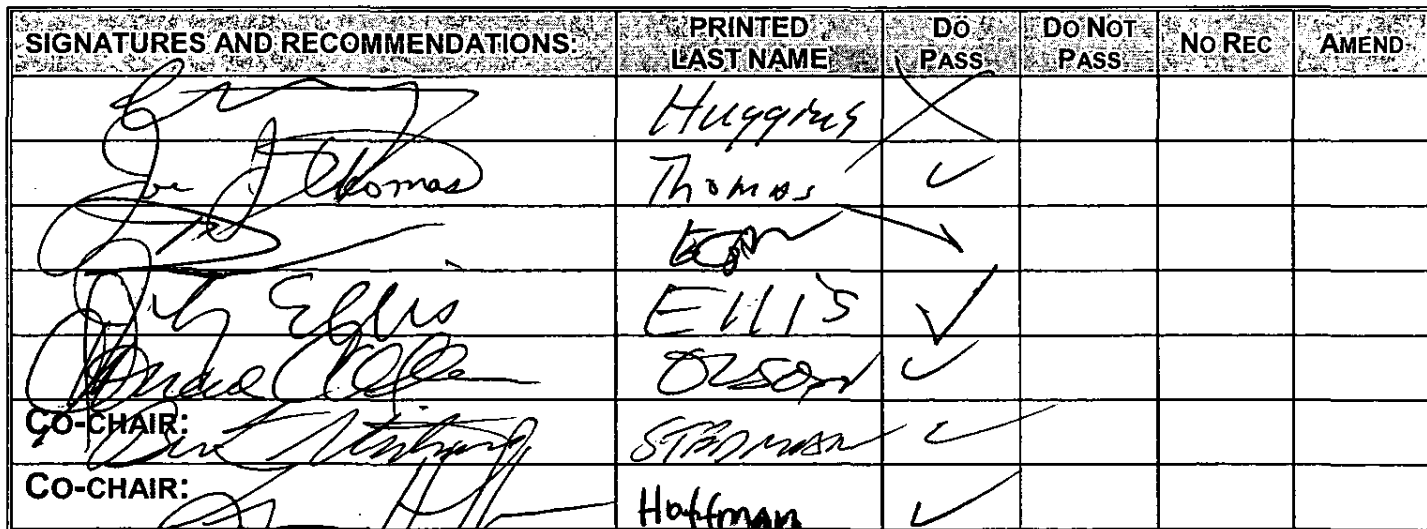 SIGNATURES AND RECOMMENDATIONS: PRINTED LAST NAME DO PASS DO NOT PASS NO REC AMEND
Huggins X
Joe J Thomas Thomas ✓
Johnny Ellis Ellis ✓
Donald Olson Olson ✓
CO-CHAIR: Bert Stedman STEDMAN ✓
CO-CHAIR: Hoffman ✓